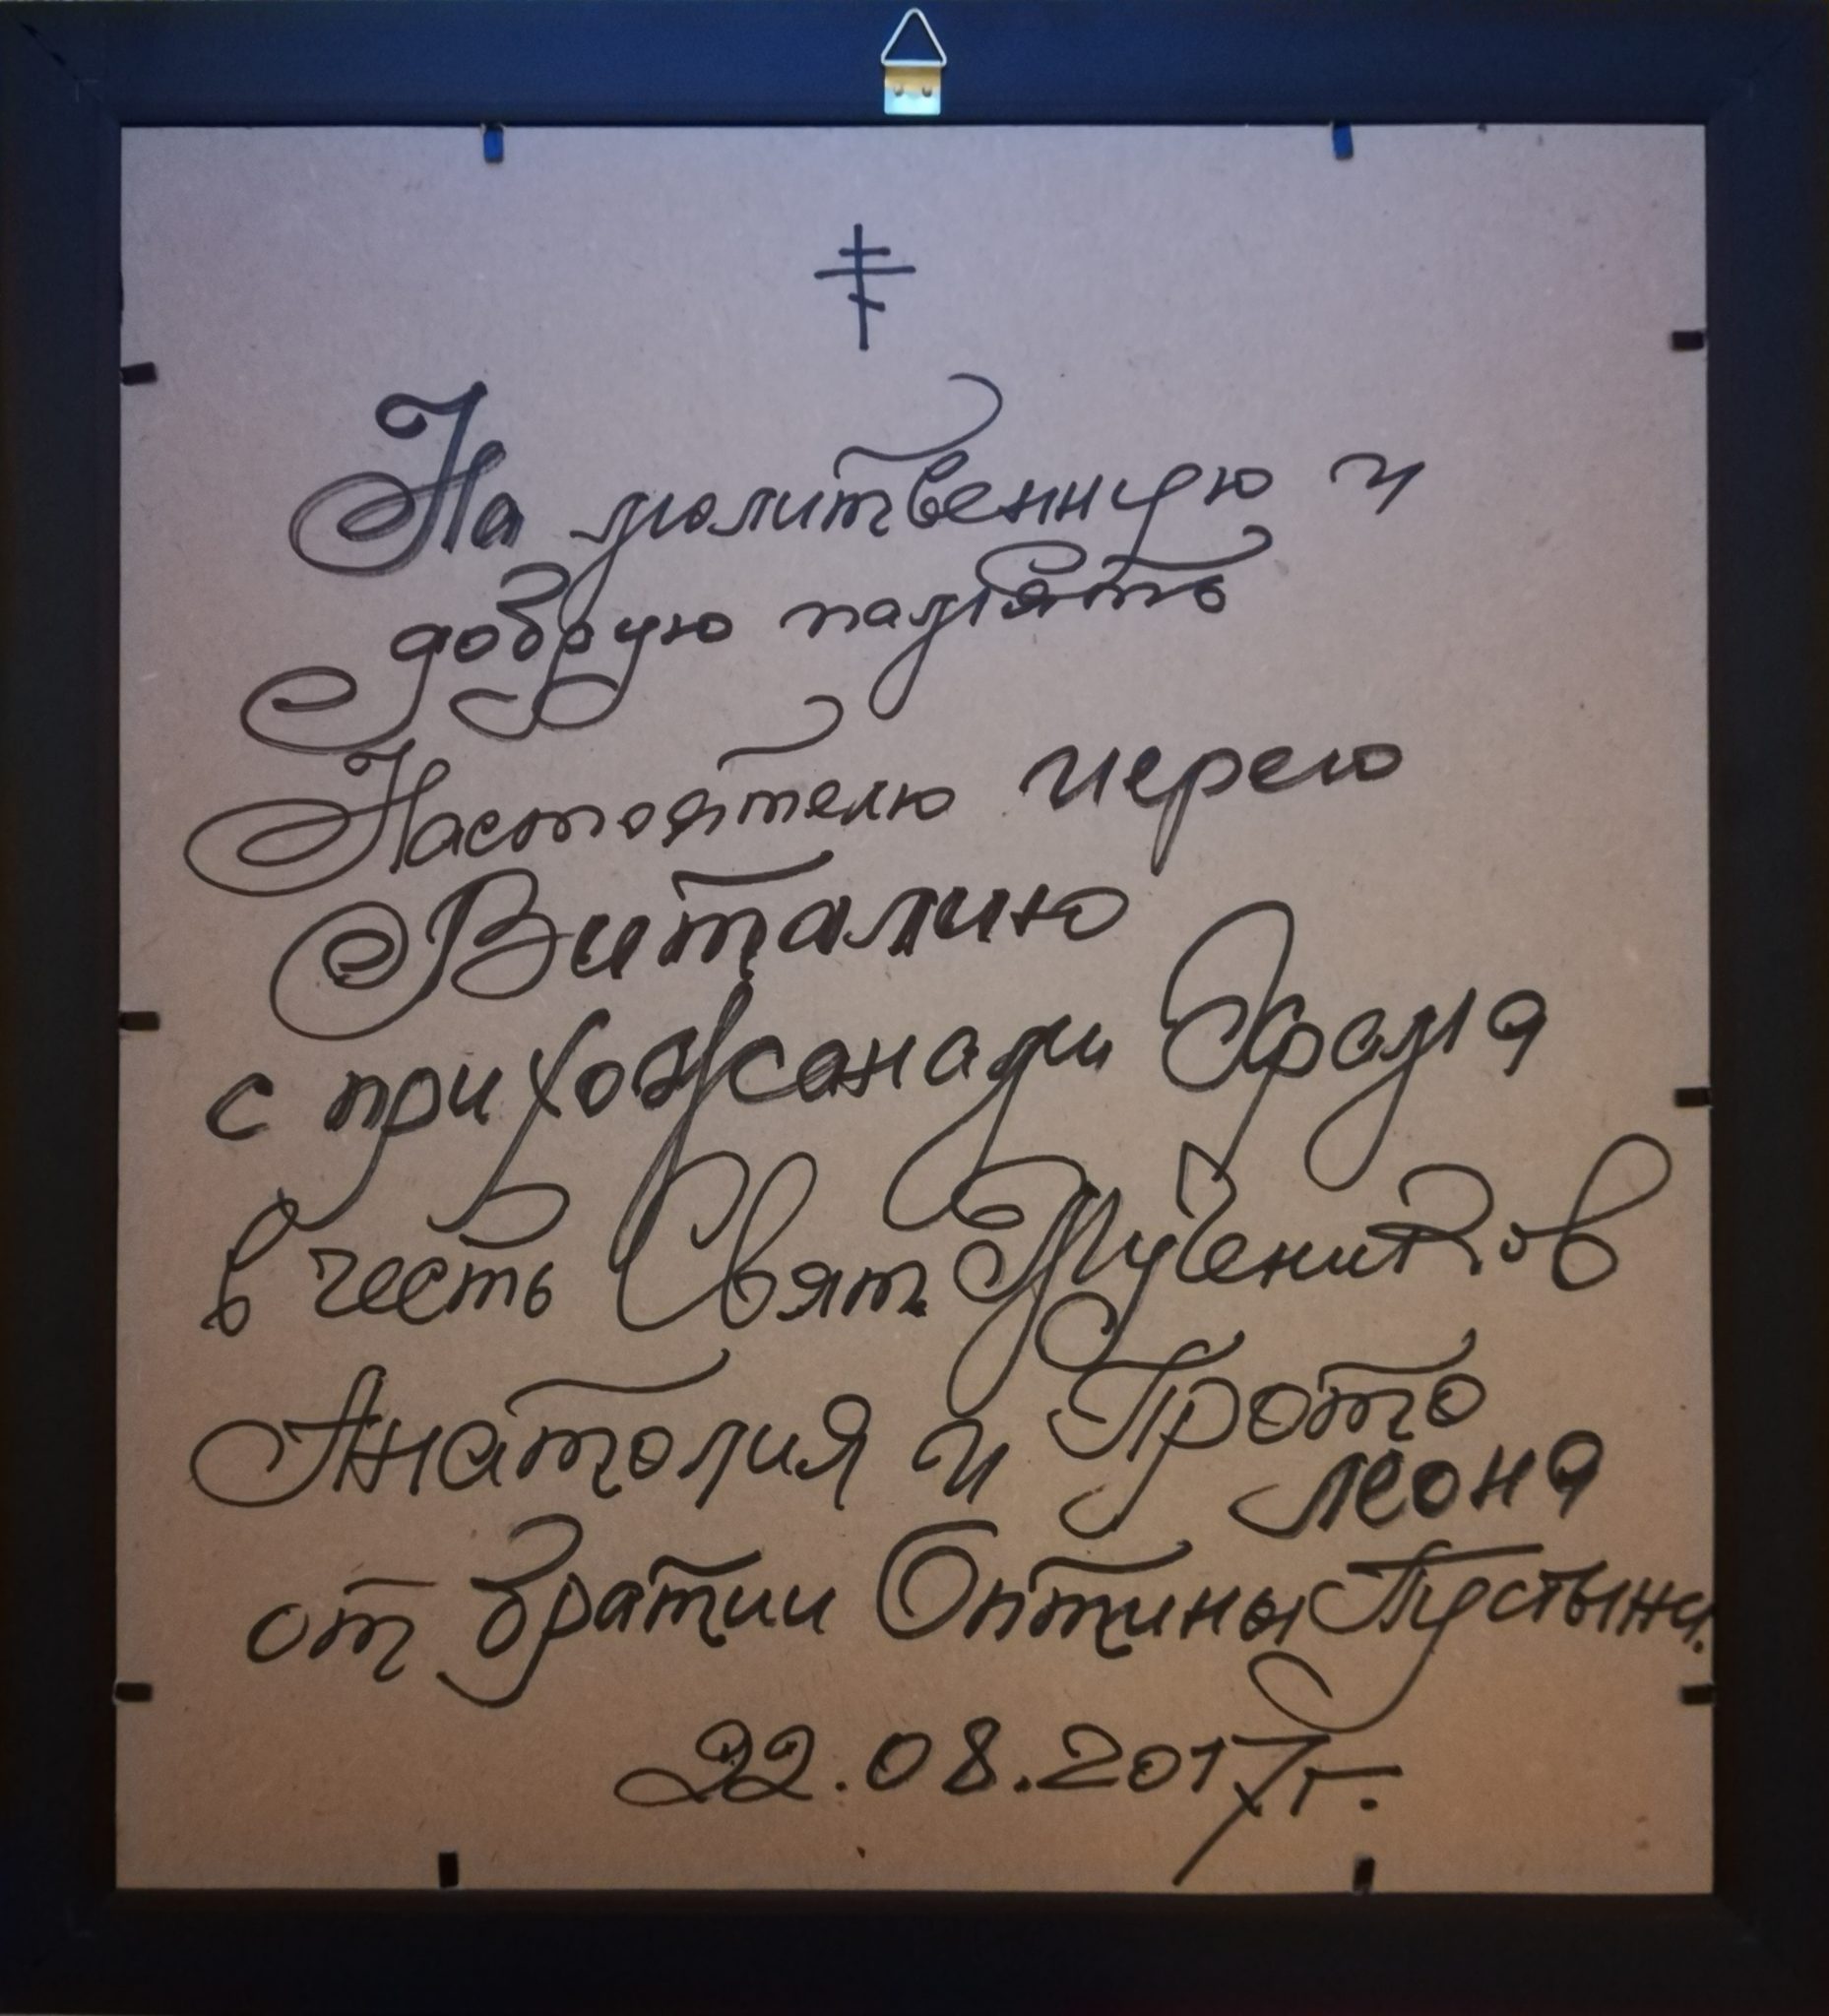 На молитвенную и
добрую память
Настоятелю иерею
Виталию
с прихожанами Храма
в честь Свят Мучеников
Анатолия и Прото
леона
от братии Оптины Пустыни.
22.08.2017г.